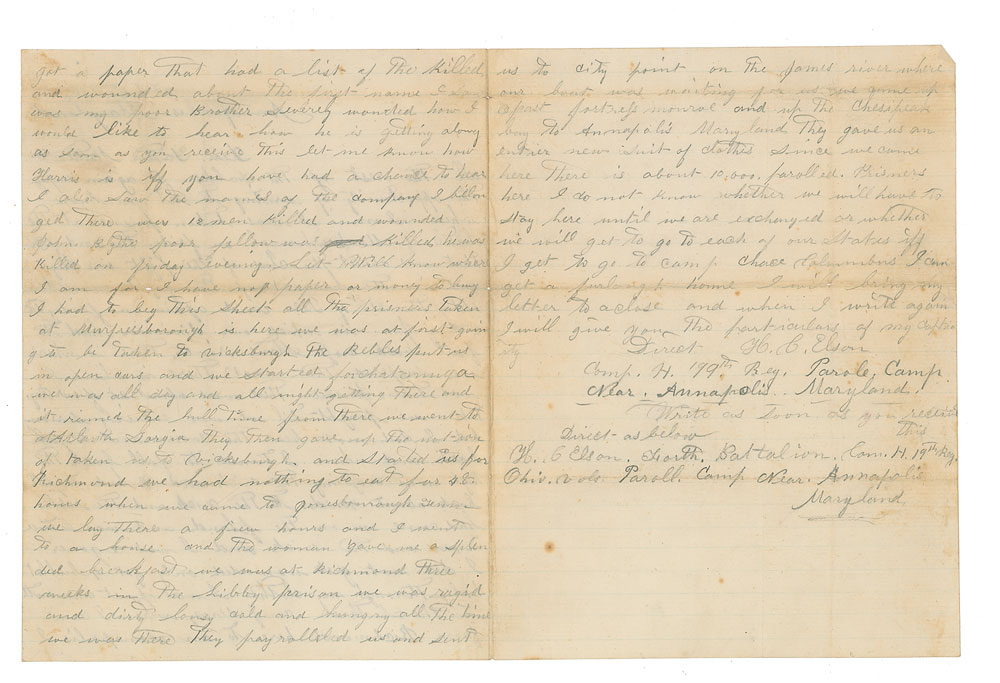 got a paper that had a list of the killed
and wounded about the first name I saw
was my poor Brother Severly wounded how I
would like to hear how he is getting along
as soon as you receive this let me know how
Harris is iff you have had a chance to hear
I also saw the names of the company I belon
ged There was 12 men killed and wounded
John Blythe poor fellow was killed he was
killed on friday evening Let Will know wher
I am for I have no paper or money to buy
I had to beg this Sheet all the prisners taken
at Murfreesborough is here we was at first goin
g to be taken to vicksburgh the Rebbles put us
in open cars and we started for chatanuga
we was all day and all night getting there and
it rained the hull time from there we went to
Atlanta Gorgia they then gave up the notion
of taken us to vicksburgh. and started us for
Richmond we had nothing to eat for 48
hours when we came to jonesborraugh
we lay there a few hours and I went
to a house and the woman gave me a splen
ded breackfast we was at Richmond three
weeks in the Libby prison we was
and dirty lousy cold and hungry all the time
we was there they payrolled us and sent
us to city point on the James river where
our boat was waiting for us we came
past fortress monroe and up the Chesipeak
bay to Annapolis Maryland They gave us an
entier new suit of clothes since we came
here There is about 10,000. parolled. Prisners
here I do not know whether we will have to
stay here until we are exchanged or whether
we will get to go to each of our States iff
I get to go to camp chace Columbus I can
get a furlough home I will bring my
letter to a close and when I write again
I will give you the particulars of my captiv
ity Direct H. C. Elson
Comp. H. 19th Reg. Parole, Camp
Near. Annapolis Maryland.
Write as soon as you receive
this
Direct as below
H. C Elson. Fourth. Battalion. Com. H. 19th Reg.
Ohio. vols Paroll. Camp Near. Annapolis
Maryland